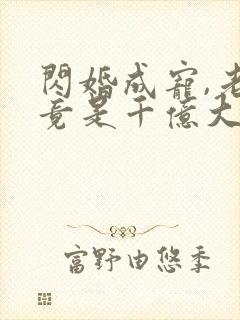 閃婚成寵,老
竟是千億大
富野由悠季